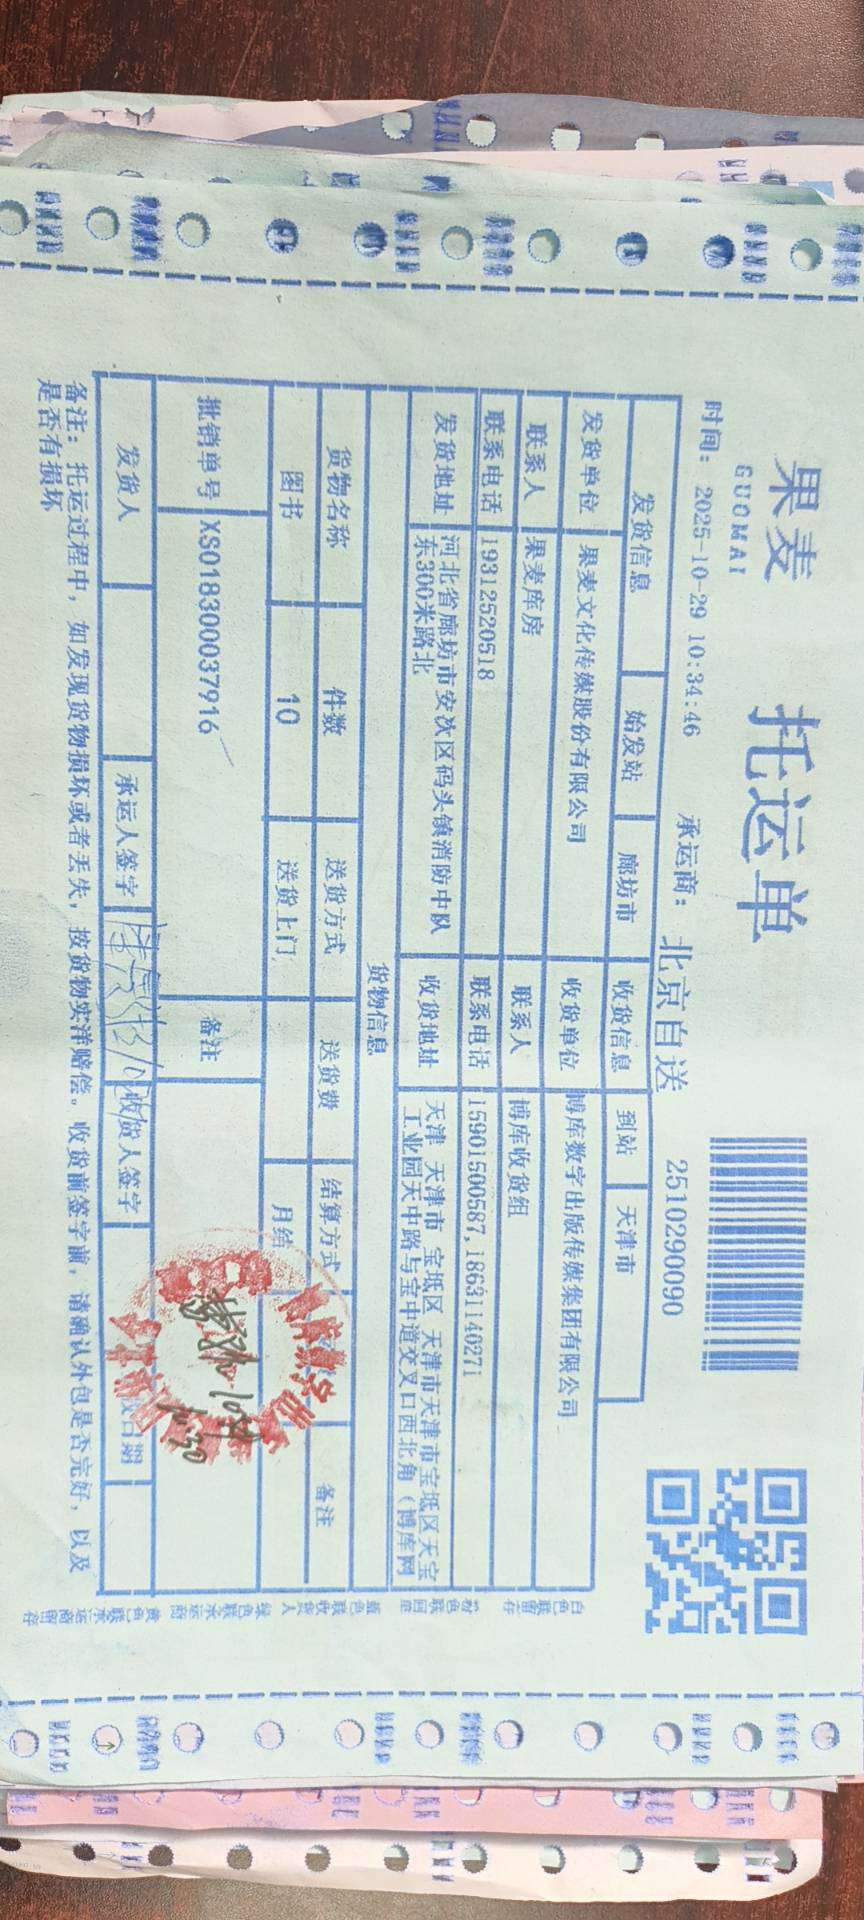 果麦
GUOMAI
托运单
时间：2025-10-29 10:34:46 承运商：北京自送 2510290090
发货信息 始发站 廊坊市 收货信息 到站 天津市
发货单位 果麦文化传媒股份有限公司 收货单位 博库数字出版传媒集团有限公司
联系人 果麦库房 联系人 博库收货组
联系电话 19312520518 联系电话 15901500587,18631140271
发货地址 河北省廊坊市安次区码头镇消防中队东300米路北 收货地址 天津 天津市 宝坻区 天津市天津市宝坻区天宝工业园天中路与宝中道交叉口西北角（博库网
货物信息
货物名称 件数 送货方式 送货费 结算方式 备注
图书 10 送货上门 月结
批销单号 XS018300037916 备注
发货人 承运人签字 收货人签字 日期
备注：托运过程中，如发现货物损坏或者丢失，按货物实洋赔偿。收货前签字前，请确认外包是否完好，以及
是否有损坏
白色联留存 粉色联回单 蓝色联收货人 绿色联承运商 黄色联承运商留存